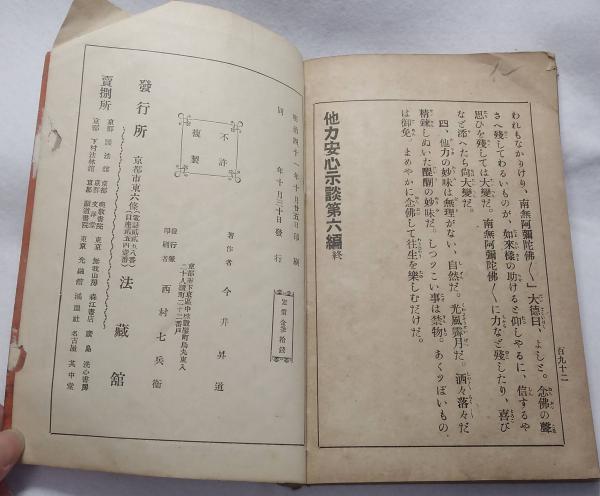 百九十二
われもなかりけり、南無阿彌陀佛〳〵」大德曰、よしと。念佛の聲
さへ殘してわるいものが、如來樣の助けると仰しやるに、信するや
思ひを殘しては大變だ。南無阿彌陀佛〳〵に力など殘したり、喜び
など添へたら尙大變だ。
四、他力の妙味は無理がない、自然だ。光風霽月だ、洒々落々だ
精錬しぬいた醍醐の妙味だ。しつッこい事は禁物。あくッぽいもの
は御免。まめやかに念佛して往生を樂しむだけだ。
他力安心示談第六編 終
明治四十一年十月廿五日印刷
同 年十月三十日發行
定價金參拾錢
不許
複製
著作者 今井昇道
京都市下京區中珠數屋町烏丸東入
二十人講町二十二番戶
發行兼
印刷者 西村七兵衞
發行所 京都市東六條 法藏館
賣捌所